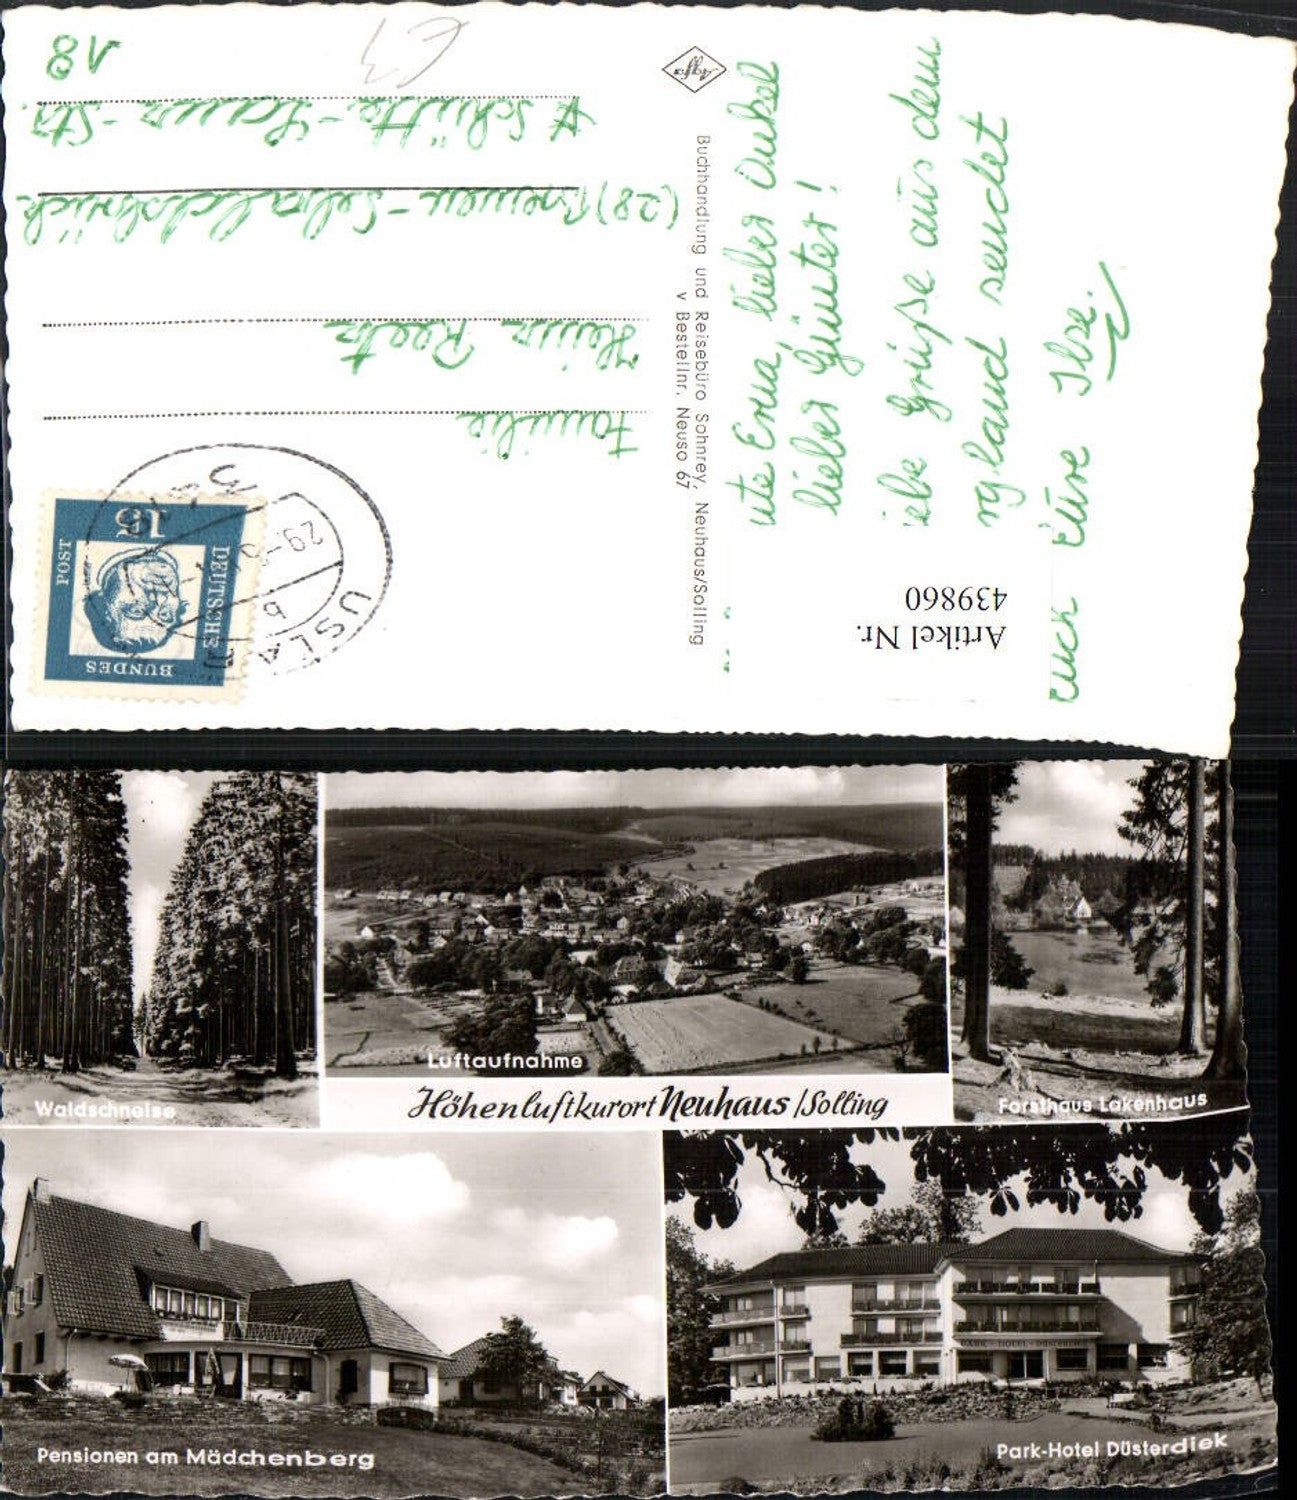 ute Erna, lieber Onkel
lieber Günter!
iebe Grüße aus dem
land sendet
Eure Ilse.
Artikel Nr.
439860
Agfa
Buchhandlung und Reisebüro Sohnrey, Neuhaus/Solling
v Bestellnr. Neuso 67
DEUTSCHE
BUNDES
POST
15
USLAR
b
29.
Familie
Heinz
(28) Bremen-Sebaldsbrück
Str.
18
Waldschneise
Luftaufnahme
Höhenluftkurort Neuhaus/Solling
Forsthaus Lakenhaus
Pensionen am Mädchenberg
PARK-HOTEL-DÜSTERDIEK
Park-Hotel Düsterdiek